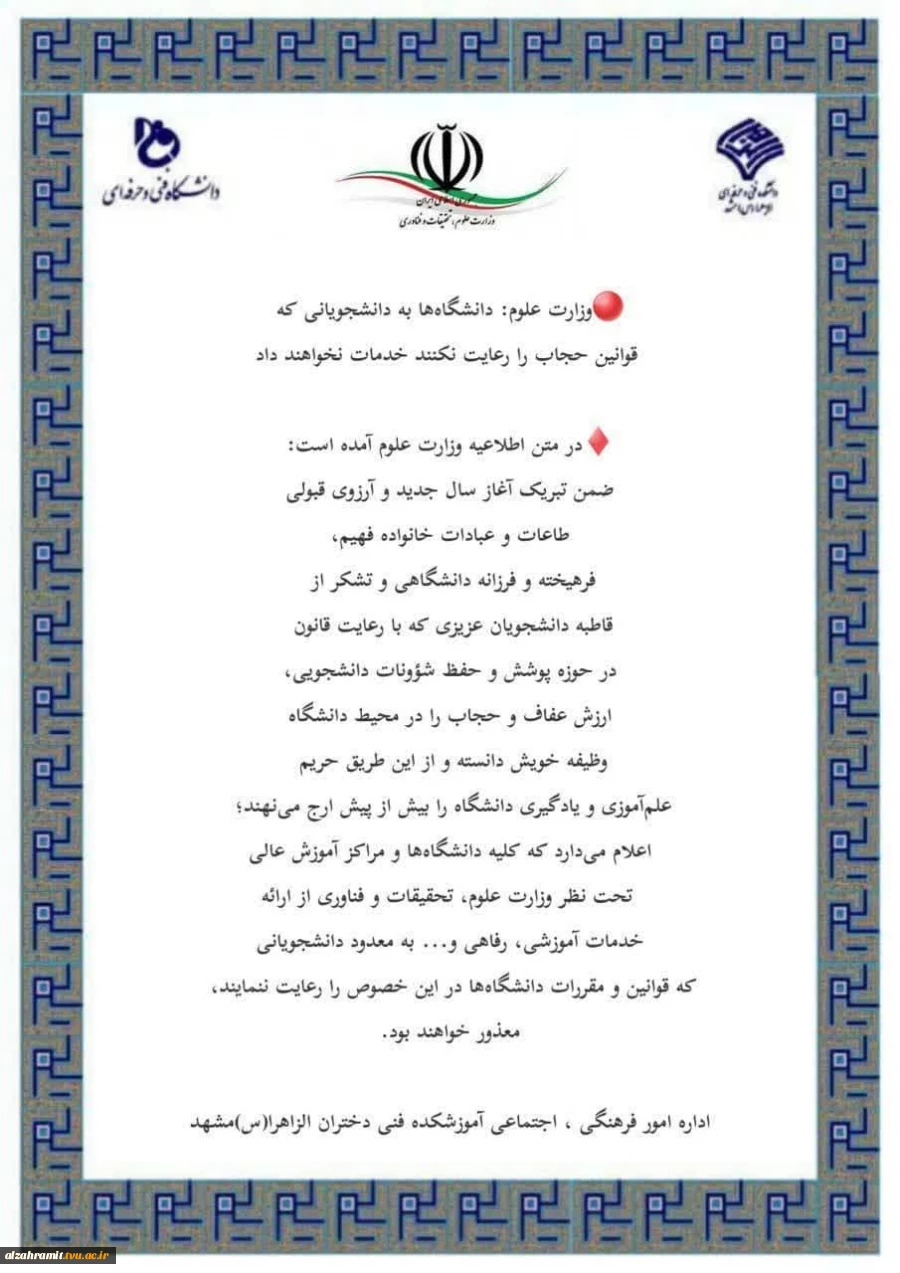 دانشگاه فنی و حرفه‌ای
وزارت علوم، تحقیقات و فناوری
وزارت علوم: دانشگاه‌ها به دانشجویانی که
قوانین حجاب را رعایت نکنند خدمات نخواهند داد
در متن اطلاعیه وزارت علوم آمده است:
ضمن تبریک آغاز سال جدید و آرزوی قبولی
طاعات و عبادات خانواده فهیم،
فرهیخته و فرزانه دانشگاهی و تشکر از
قاطبه دانشجویان عزیزی که با رعایت قانون
در حوزه پوشش و حفظ شؤونات دانشجویی،
ارزش عفاف و حجاب را در محیط دانشگاه
وظیفه خویش دانسته و از این طریق حریم
علم‌آموزی و یادگیری دانشگاه را بیش از پیش ارج می‌نهند؛
اعلام می‌دارد که کلیه دانشگاه‌ها و مراکز آموزش عالی
تحت نظر وزارت علوم، تحقیقات و فناوری از ارائه
خدمات آموزشی، رفاهی و... به معدود دانشجویانی
که قوانین و مقررات دانشگاه‌ها در این خصوص را رعایت ننمایند،
معذور خواهند بود.
اداره امور فرهنگی ، اجتماعی آموزشکده فنی دختران الزاهرا(س)مشهد
alzahramit.tvu.ac.ir